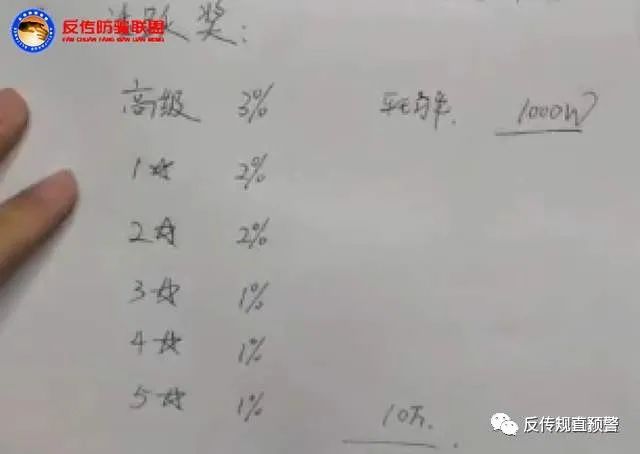 反传防骗联盟
FAN CHUAN FANG PIAN LIAN MENG
奖:
高级 3% 1000W
1☆ 2%
2☆ 2%
3☆ 1%
4☆ 1%
5☆ 1% 10万.
反传规直预警